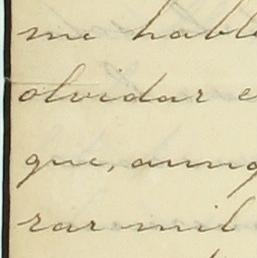 me habl
olvidar e
que, aunq
rar mil